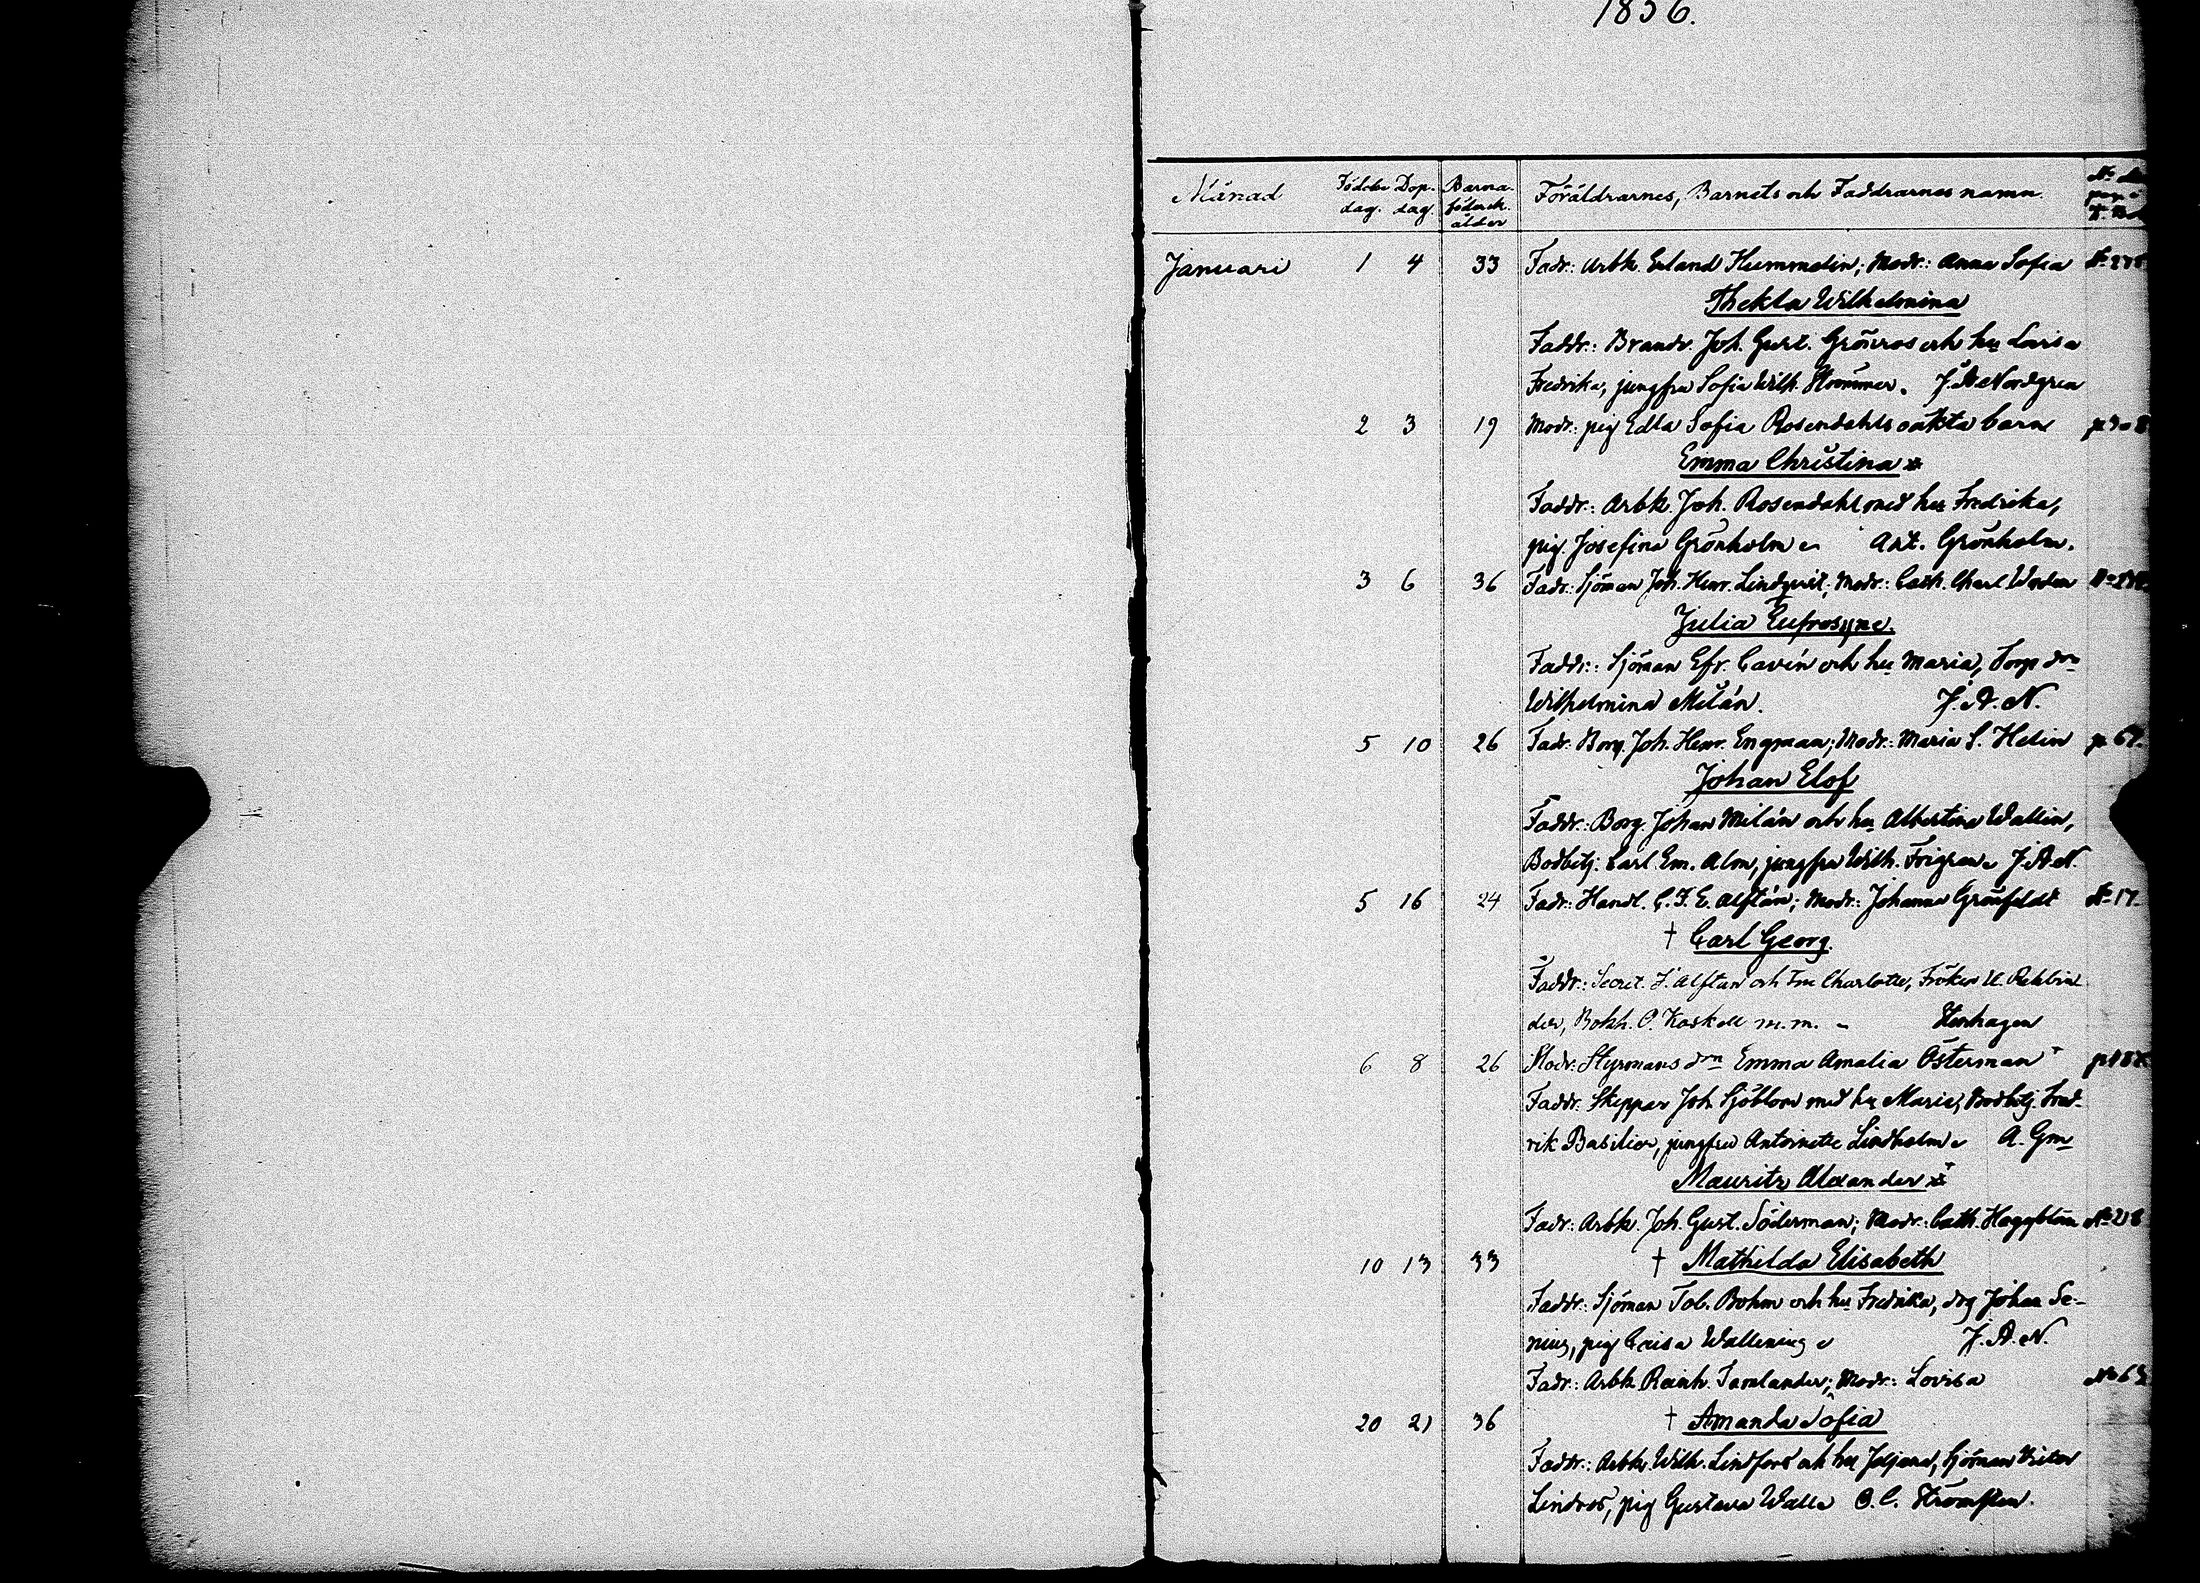 1856.
Månad Födelse Dop- Barna- Föräldrarnes, Barnets och Faddrarnes namn. No
dag. dag födersk. pag i
ålder
Januari 1 4 33 Fadr: Arbk. Erland Hummelin; Modr: Anna Sofia
Thekla Wilhelmina
Faddr: Brandv. Joh. Gust. Grönroos och hu Lovisa
Fredrika, jungfru Sofia Wilh. J. A. Nordgren
2 3 19 Modr: pig Edla Sofia Rosendahls oäkta barn
Emma Christina
Faddr: Arbk. Joh. Rosendahl med hu Fredrika,
pig. Josefina Grönholm Ant. Grönholm.
3 6 36 Fadr: Sjöman Joh. Henr. Lindqvist; Modr: Cath. Charl
Julia Eufrosyne.
Faddr: Sjöman Efr. Cavén och hu Maria, Torp drn
Wilhelmina Milán. J. A. N.
5 10 26 Fadr: Borg. Joh. Henr. Engman; Modr: Maria S. Helin p. 67.
Johan Elof
Faddr: Borg. Johan Milán och hu Albertina Wallin,
Bodbetj. Carl Em. Alm, jungfru Wilh. Frigren J. A. N.
5 16 24 Fadr: Handl. C. F. E. Alftán; Modr: Johanna Grönfeldt No 17
† Carl Georg.
Faddr: Secret. J. Alftan och Fru Charlotte, Fröken U. Rehbin
der, Bokh. O. Kaskell m. m. Stenhagen
6 8 26 Modr: Styrmans drn Emma Amalia Österman
Faddr: Skeppar Joh Sjöblom med hu Maria, Bodbetj. Fred-
rik Basilier, jungfru Antoinette Lindholm A. Gm
Mauritz Alexander
Fadr: Arbk. Joh. Gust. Söderman; Modr: Cath. Häggblom No 218
10 13 33 † Mathilda Elisabeth
Faddr: Sjöman Tob. Bohm och hu Fredrika, drg Johan Se-
nius, pig Caisa Wallenius J. A. N.
Fadr: Arbk Reinh. Tamlander; Modr: Lovisa No 63
20 21 36 † Amanda Sofia
Faddr: Arbk. Wilh. Lindfors och hu Juljana, Sjöman Victor
Lindros, pig Gustava Walle O. C. Strömsten.